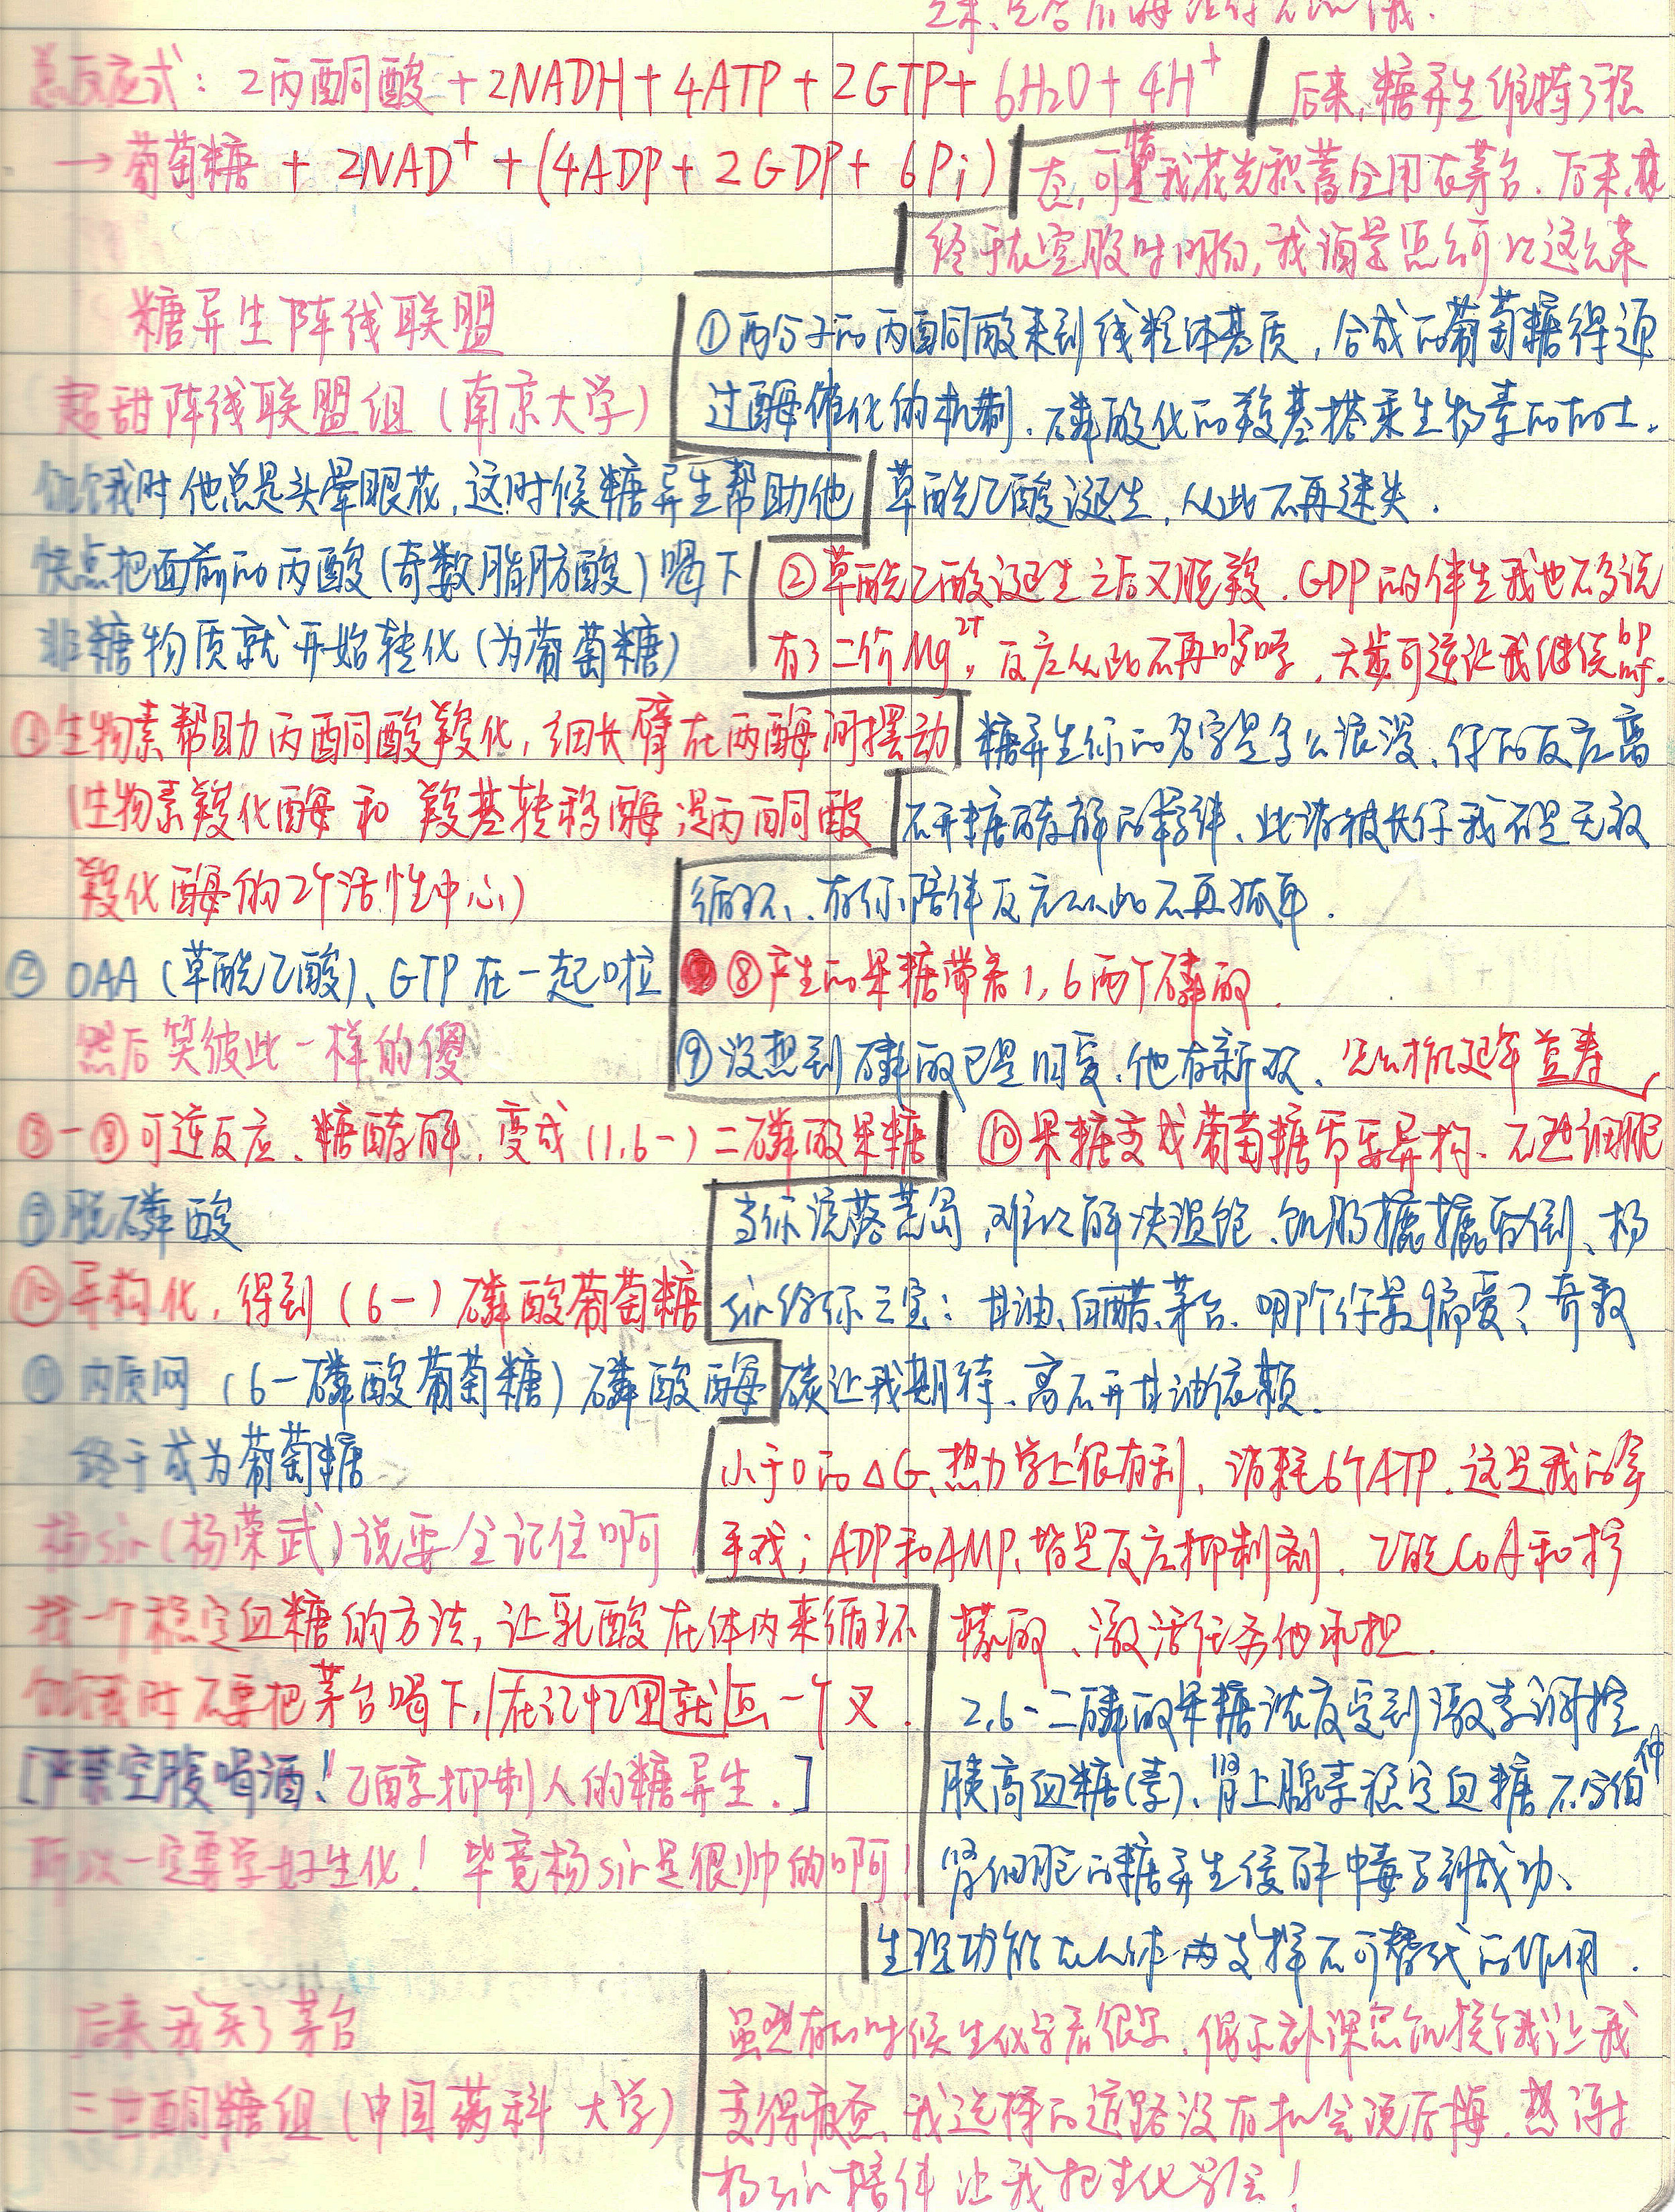 总反应式：2丙酮酸+2NADH+4ATP+2GTP+6H₂O+4H⁺
→葡萄糖+2NAD⁺+(4ADP+2GDP+6Pi)
糖异生阵线联盟
超甜阵线联盟组（南京大学）
饥饿时他总是头晕眼花，这时候糖异生帮助他
快点把面前的丙酸（奇数脂肪酸）喝下
非糖物质就开始转化（为葡萄糖）
①生物素帮助丙酮酸羧化，细长臂在两酶间摆动
（生物素羧化酶和羧基转移酶是丙酮酸
羧化酶的2个活性中心）
②OAA（草酰乙酸）、GTP在一起啦
然后笑彼此一样的傻
③-⑧可逆反应、糖酵解、变成（1,6-）二磷酸果糖
⑨脱磷酸
⑩异构化，得到（6-）磷酸葡萄糖
⑪内质网（6-磷酸葡萄糖）磷酸酶
终于成为葡萄糖
杨sir（杨荣武）说要全记住啊
找一个稳定血糖的方法，让乳酸在体内来循环
饥饿时不要把茅台喝下，在记忆里就画一个叉．
[严禁空腹喝酒！乙醇抑制人的糖异生．]
所以一定要学好生化！毕竟杨sir是很帅的啊！
后来我买了茅台
三世酮糖组（中国药科大学）
后来，糖异生维持了稳
态，可惜我花光积蓄全用在茅台．后来，
终于在空腹时明白，我酒量怎么可以这么菜
①两分子的丙酮酸来到线粒体基质，合成的葡萄糖得通
过酶催化的机制．磷酸化的羧基搭乘生物素的的士．
草酰乙酸诞生，从此不再迷失．
②草酰乙酸诞生之后又脱羧．GDP的伴生我也不多说
有了二价Mg²⁺，反应从此不再哆嗦，六步可逆让我继续
糖异生你的名字是多么浪漫、你的反应离
不开糖酵解的陪伴、此消彼长你我不是无效
循环、有你陪伴反应从此不再孤单．
⑧产生的果糖带着1,6两个磷酸．
⑨没想到磷酸已是旧爱．他有新欢．怎么抓延年益寿
⑩果糖变成葡萄糖需要异构、不进细胞
当你流落荒岛，难以解决温饱、饥肠辘辘昏倒、杨
sir给你三宝：甘油、白醋、茅台．哪个你最偏爱？奇数
碳让我期待、离不开甘油依赖．
小于0的ΔG、热力学上很有利，消耗6个ATP．这是我的拿
手戏；ADP和AMP、皆是反应抑制剂．乙酰CoA和柠
檬酸、激活任务他承担．
2,6-二磷酸果糖浓度受到激素调控
胰高血糖(素)、肾上腺素稳定血糖不分伯仲
肾细胞的糖异生缓酸中毒立刻成功、
生理功能在人体内发挥不可替代的作用．
虽然有的时候生化学着很累．偶尔补课忍饥挨饿让我
变得疲惫、我选择的道路没有机会说后悔．感谢
杨sir陪伴让我把生化学会！